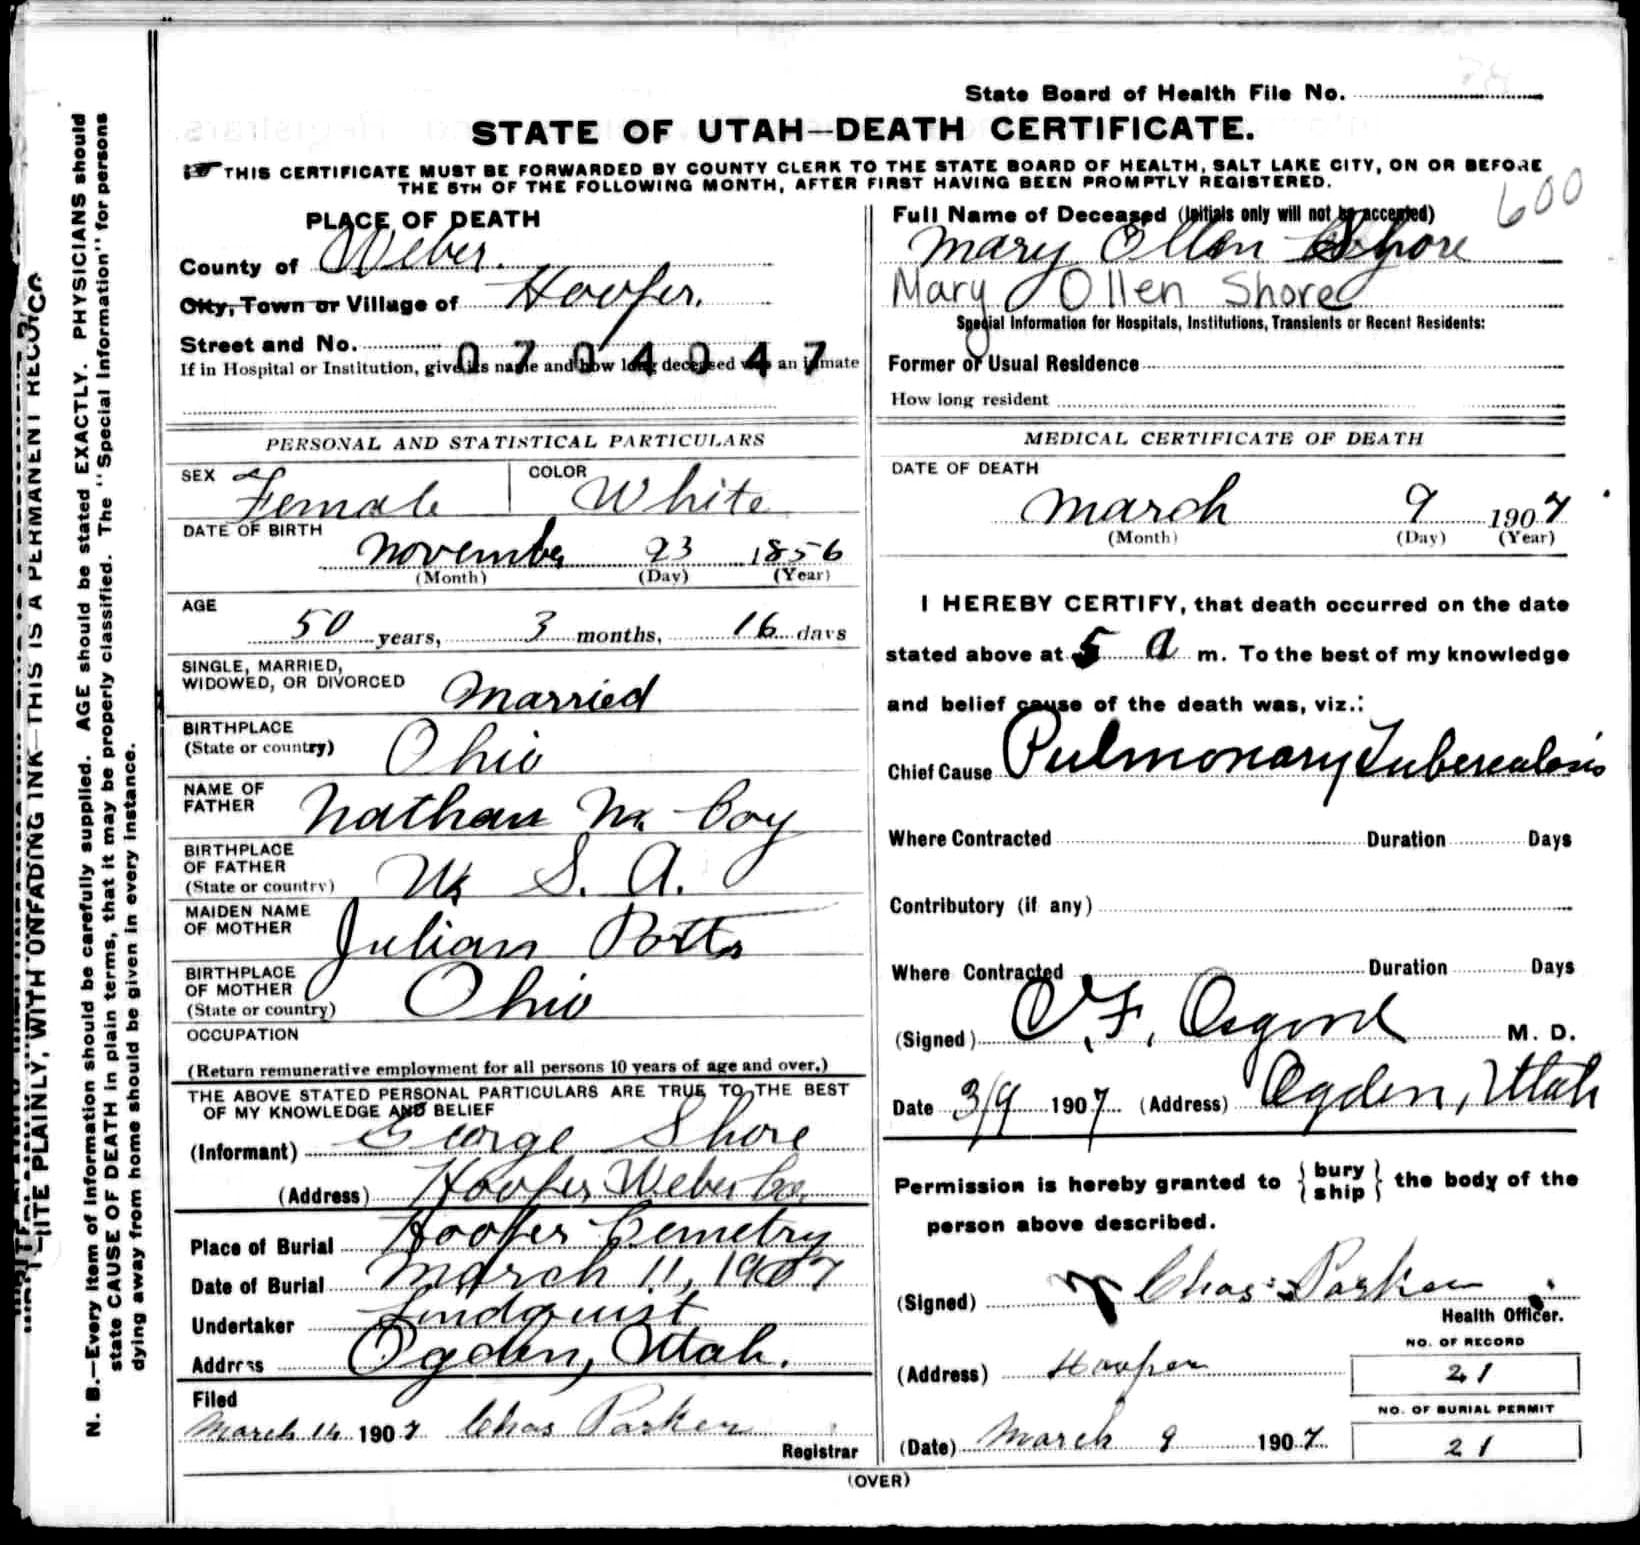 State Board of Health File No.
STATE OF UTAH—DEATH CERTIFICATE.
THIS CERTIFICATE MUST BE FORWARDED BY COUNTY CLERK TO THE STATE BOARD OF HEALTH, SALT LAKE CITY, ON OR BEFORE
THE 5TH OF THE FOLLOWING MONTH, AFTER FIRST HAVING BEEN PROMPTLY REGISTERED.
600
PLACE OF DEATH
County of Weber.
City, Town or Village of Hooper.
Street and No.
0704047
If in Hospital or Institution, give its name and how long deceased was an inmate
Full Name of Deceased (Initials only will not be accepted)
Mary Ollen Shore
Mary Ollen Shore
Special Information for Hospitals, Institutions, Transients or Recent Residents:
Former or Usual Residence
How long resident
PERSONAL AND STATISTICAL PARTICULARS
SEX Female COLOR White
DATE OF BIRTH
November 23 1856
(Month) (Day) (Year)
AGE
50 years, 3 months, 16 days
SINGLE, MARRIED,
WIDOWED, OR DIVORCED Married
BIRTHPLACE
(State or country) Ohio
NAME OF
FATHER Nathan Mc Coy
BIRTHPLACE
OF FATHER
(State or country) U. S. A.
MAIDEN NAME
OF MOTHER Julian Potts
BIRTHPLACE
OF MOTHER
(State or country) Ohio
OCCUPATION
(Return remunerative employment for all persons 10 years of age and over.)
THE ABOVE STATED PERSONAL PARTICULARS ARE TRUE TO THE BEST
OF MY KNOWLEDGE AND BELIEF
(Informant) George Shore
(Address) Hooper Weber Co.
Place of Burial Hooper Cemetry
Date of Burial March 11, 1907
Undertaker Lindquist
Address Ogden, Utah.
Filed
March 14 1907 Chas Parker
Registrar
MEDICAL CERTIFICATE OF DEATH
DATE OF DEATH
March 9 1907
(Month) (Day) (Year)
I HEREBY CERTIFY, that death occurred on the date
stated above at 5 a m. To the best of my knowledge
and belief cause of the death was, viz.:
Chief Cause Pulmonary Tuberculosis
Where Contracted Duration Days
Contributory (if any)
Where Contracted Duration Days
(Signed) F. Osgood M. D.
Date 3/9 1907 (Address) Ogden, Utah
Permission is hereby granted to {bury
ship} the body of the
person above described.
(Signed) Chas Parker
Health Officer.
NO. OF RECORD
(Address) Hooper 21
NO. OF BURIAL PERMIT
(Date) March 9 1907 21
(OVER)
N. B.—Every item of information should be carefully supplied. AGE should be stated EXACTLY. PHYSICIANS should
state CAUSE OF DEATH in plain terms, that it may be properly classified. The "Special Information" for persons
dying away from home should be given in every instance.
WRITE PLAINLY, WITH UNFADING INK—THIS IS A PERMANENT RECORD